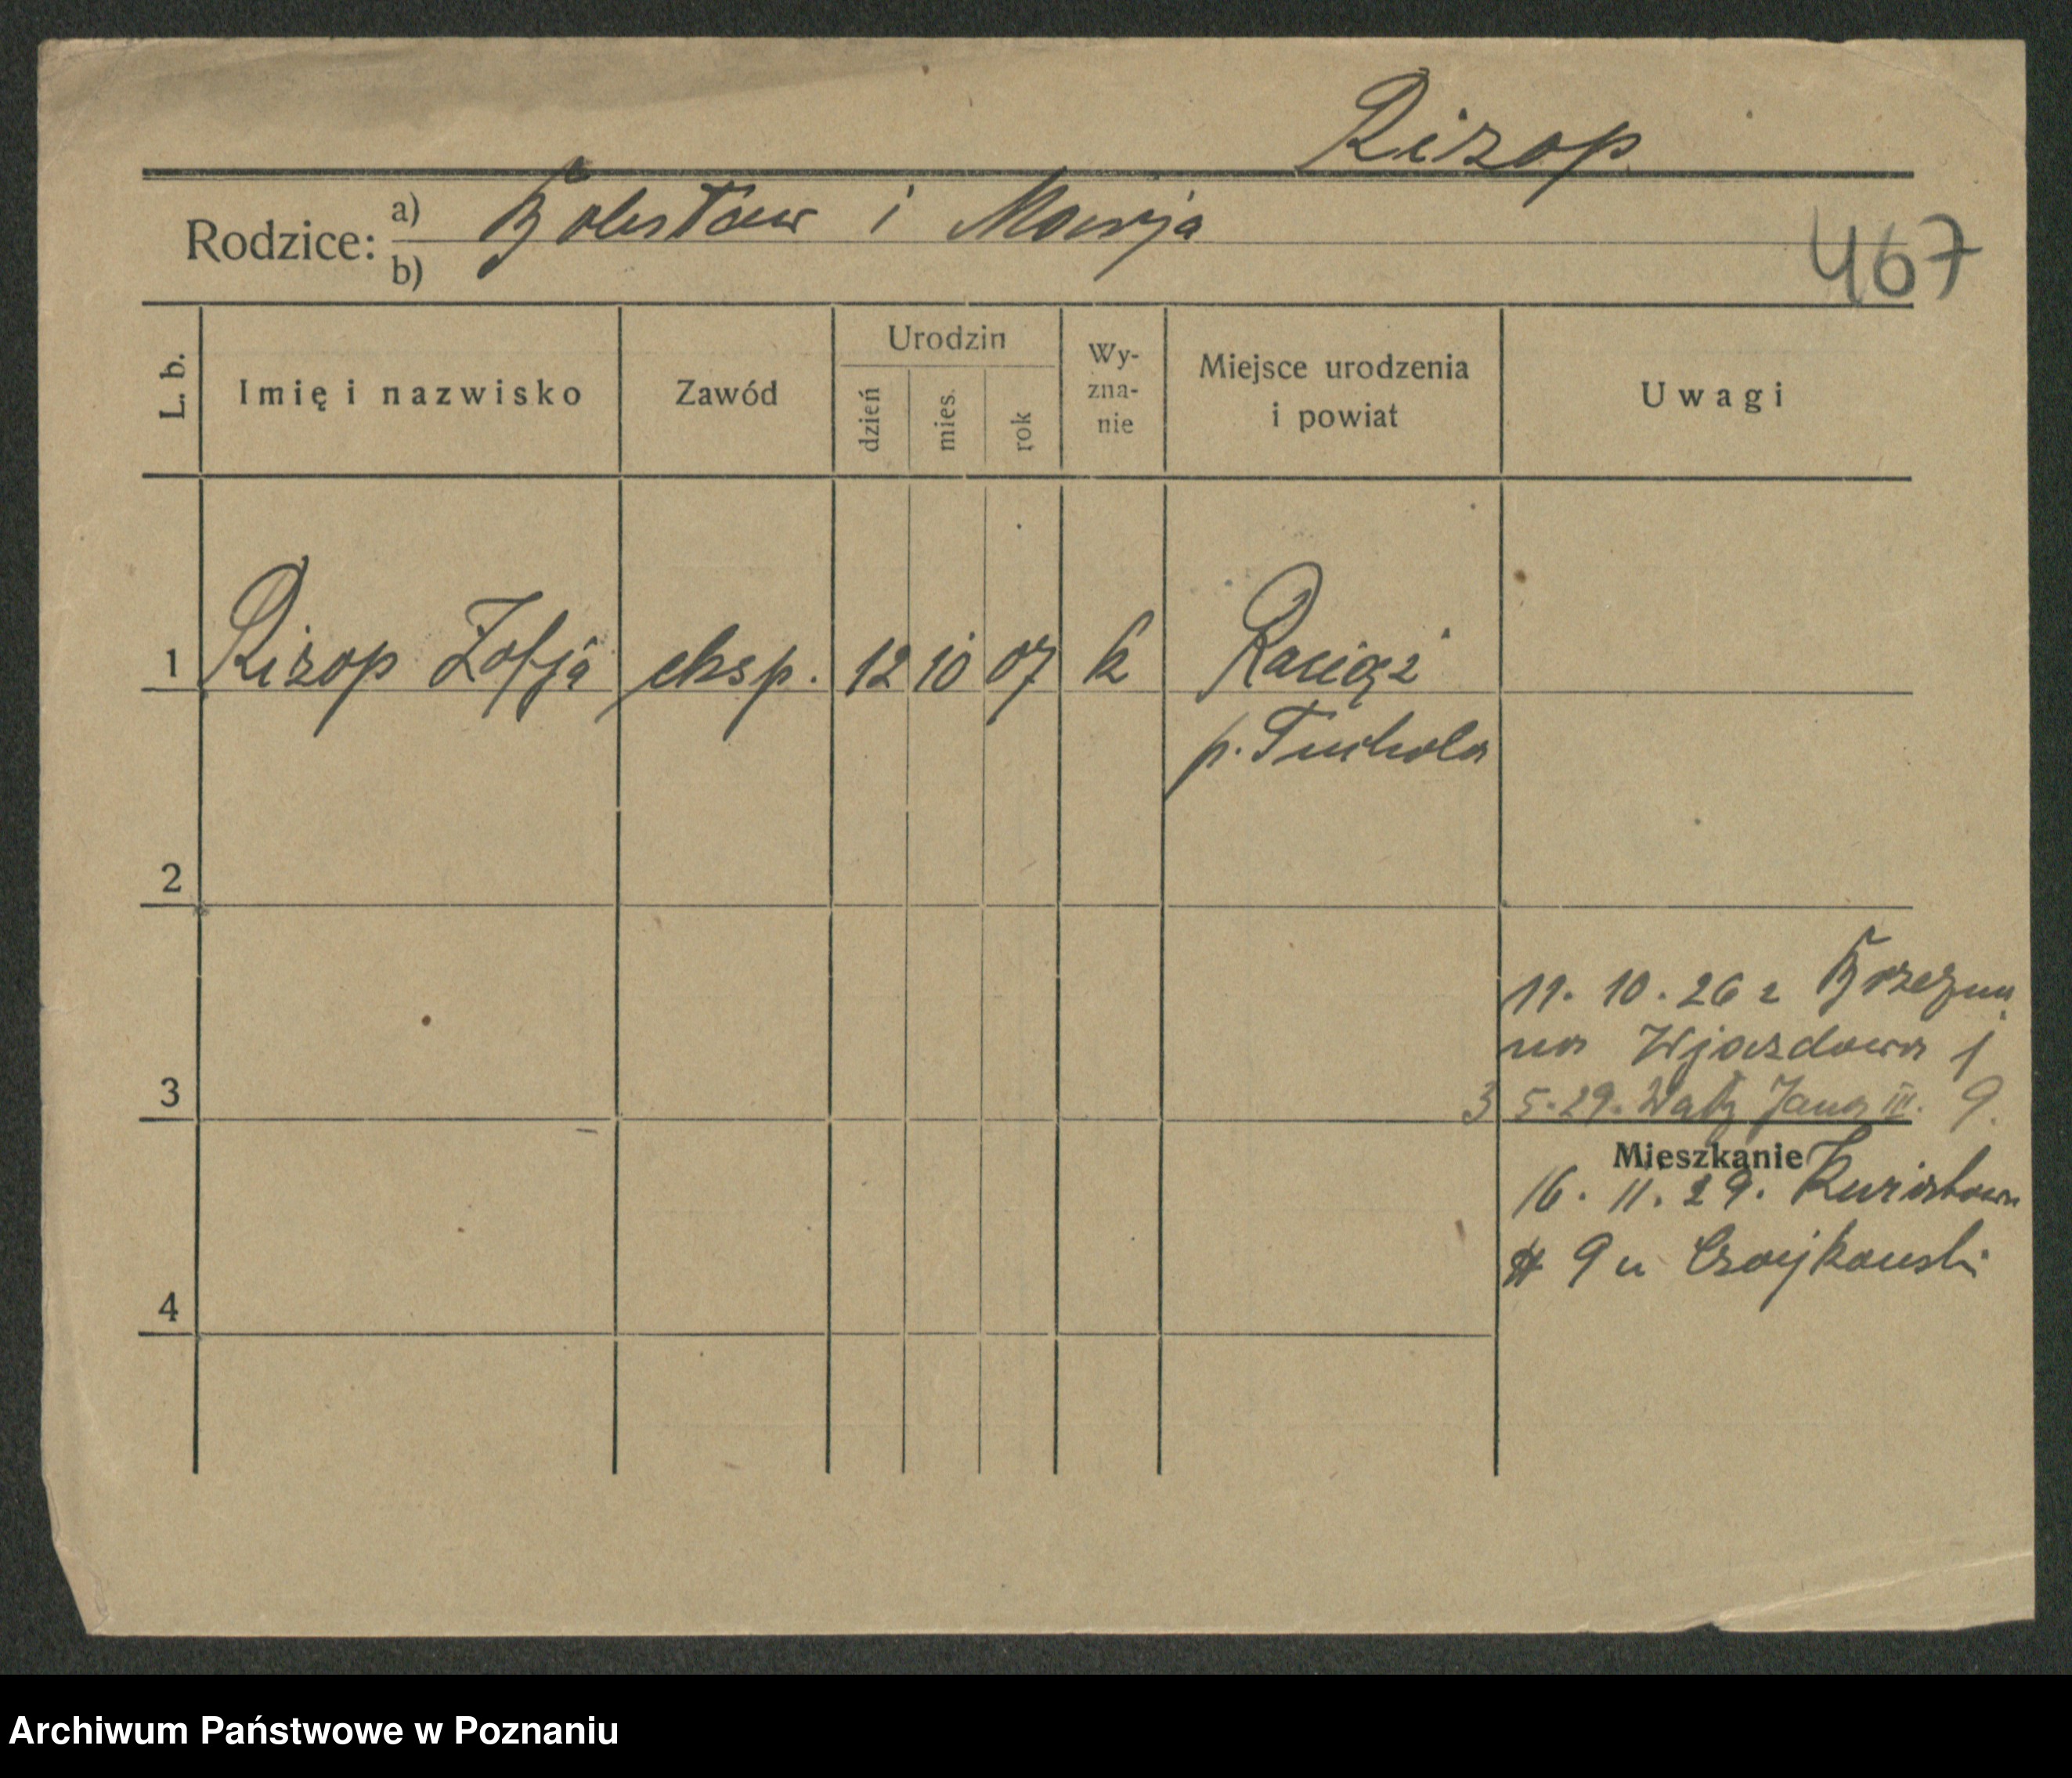 Rizop
Rodzice: a) Bolesław i Marja
b)
467
L. b.
Imię i nazwisko
Zawód
Urodzin
dzień
mies.
rok
Wy-
zna-
nie
Miejsce urodzenia
i powiat
Uwagi
1 Rizop Zofja eksp. 12 10 07 k Raciąż
p. Tuchola
2
11. 10. 26 z
na Wjazdowa 1
3
3 5. 29. Wały Jana III. 9.
Mieszkanie
16. 11. 29.
9 u Czajkowski
4
Archiwum Państwowe w Poznaniu